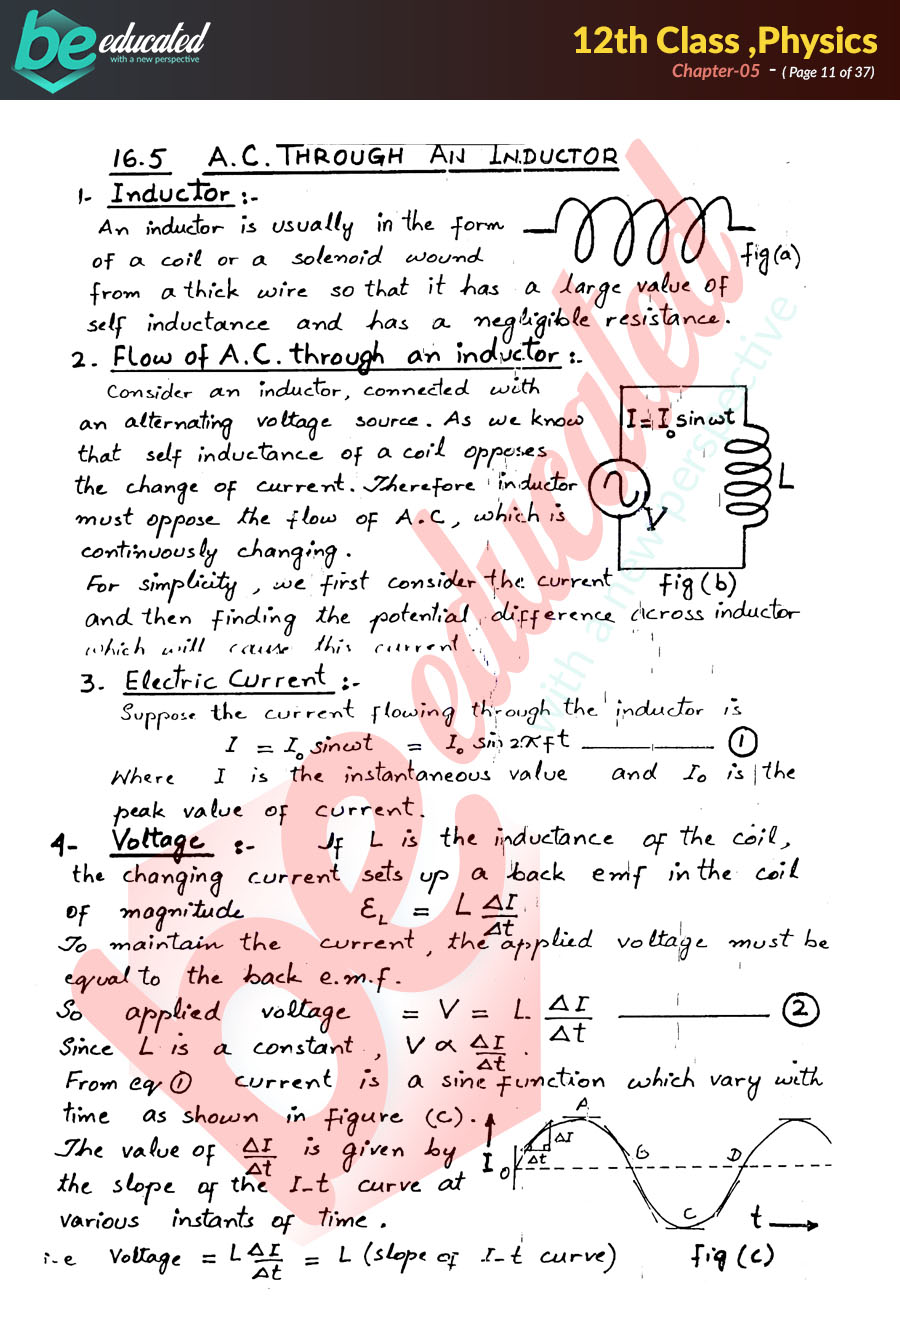 be educated
with a new perspective
12th Class ,Physics
Chapter-05 - ( Page 11 of 37)
16.5 A.C. THROUGH AN INDUCTOR
1- Inductor :-
An inductor is usually in the form
of a coil or a solenoid wound
fig (a)
from a thick wire so that it has a large value of
self inductance and has a negligible resistance.
2. Flow of A.C. through an inductor :-
Consider an inductor, connected with
an alternating voltage source. As we know
that self inductance of a coil opposes
the change of current. Therefore inductor
must oppose the flow of A.C, which is
continuously changing.
I = I₀ sinωt
L
V
fig (b)
For simplicity, we first consider the current
and then finding the potential difference across inductor
which will cause this current.
3. Electric Current :-
Suppose the current flowing through the inductor is
I = I₀ sinωt = I₀ sin 2πft ——— ①
Where I is the instantaneous value and I₀ is the
peak value of current.
4- Voltage :- If L is the inductance of the coil,
the changing current sets up a back emf in the coil
of magnitude Ɛ_L = L ΔI/Δt
To maintain the current, the applied voltage must be
equal to the back e.m.f.
So applied voltage = V = L ΔI/Δt ——— ②
Since L is a constant, V ∝ ΔI/Δt .
From eq ① current is a sine function which vary with
time as shown in figure (c).
The value of ΔI/Δt is given by
the slope of the I-t curve at
various instants of time.
A
ΔI
Δt
I
O
B
D
C
t
i-e Voltage = L ΔI/Δt = L (slope of I-t curve)
fig (c)
be educated
with a new perspective